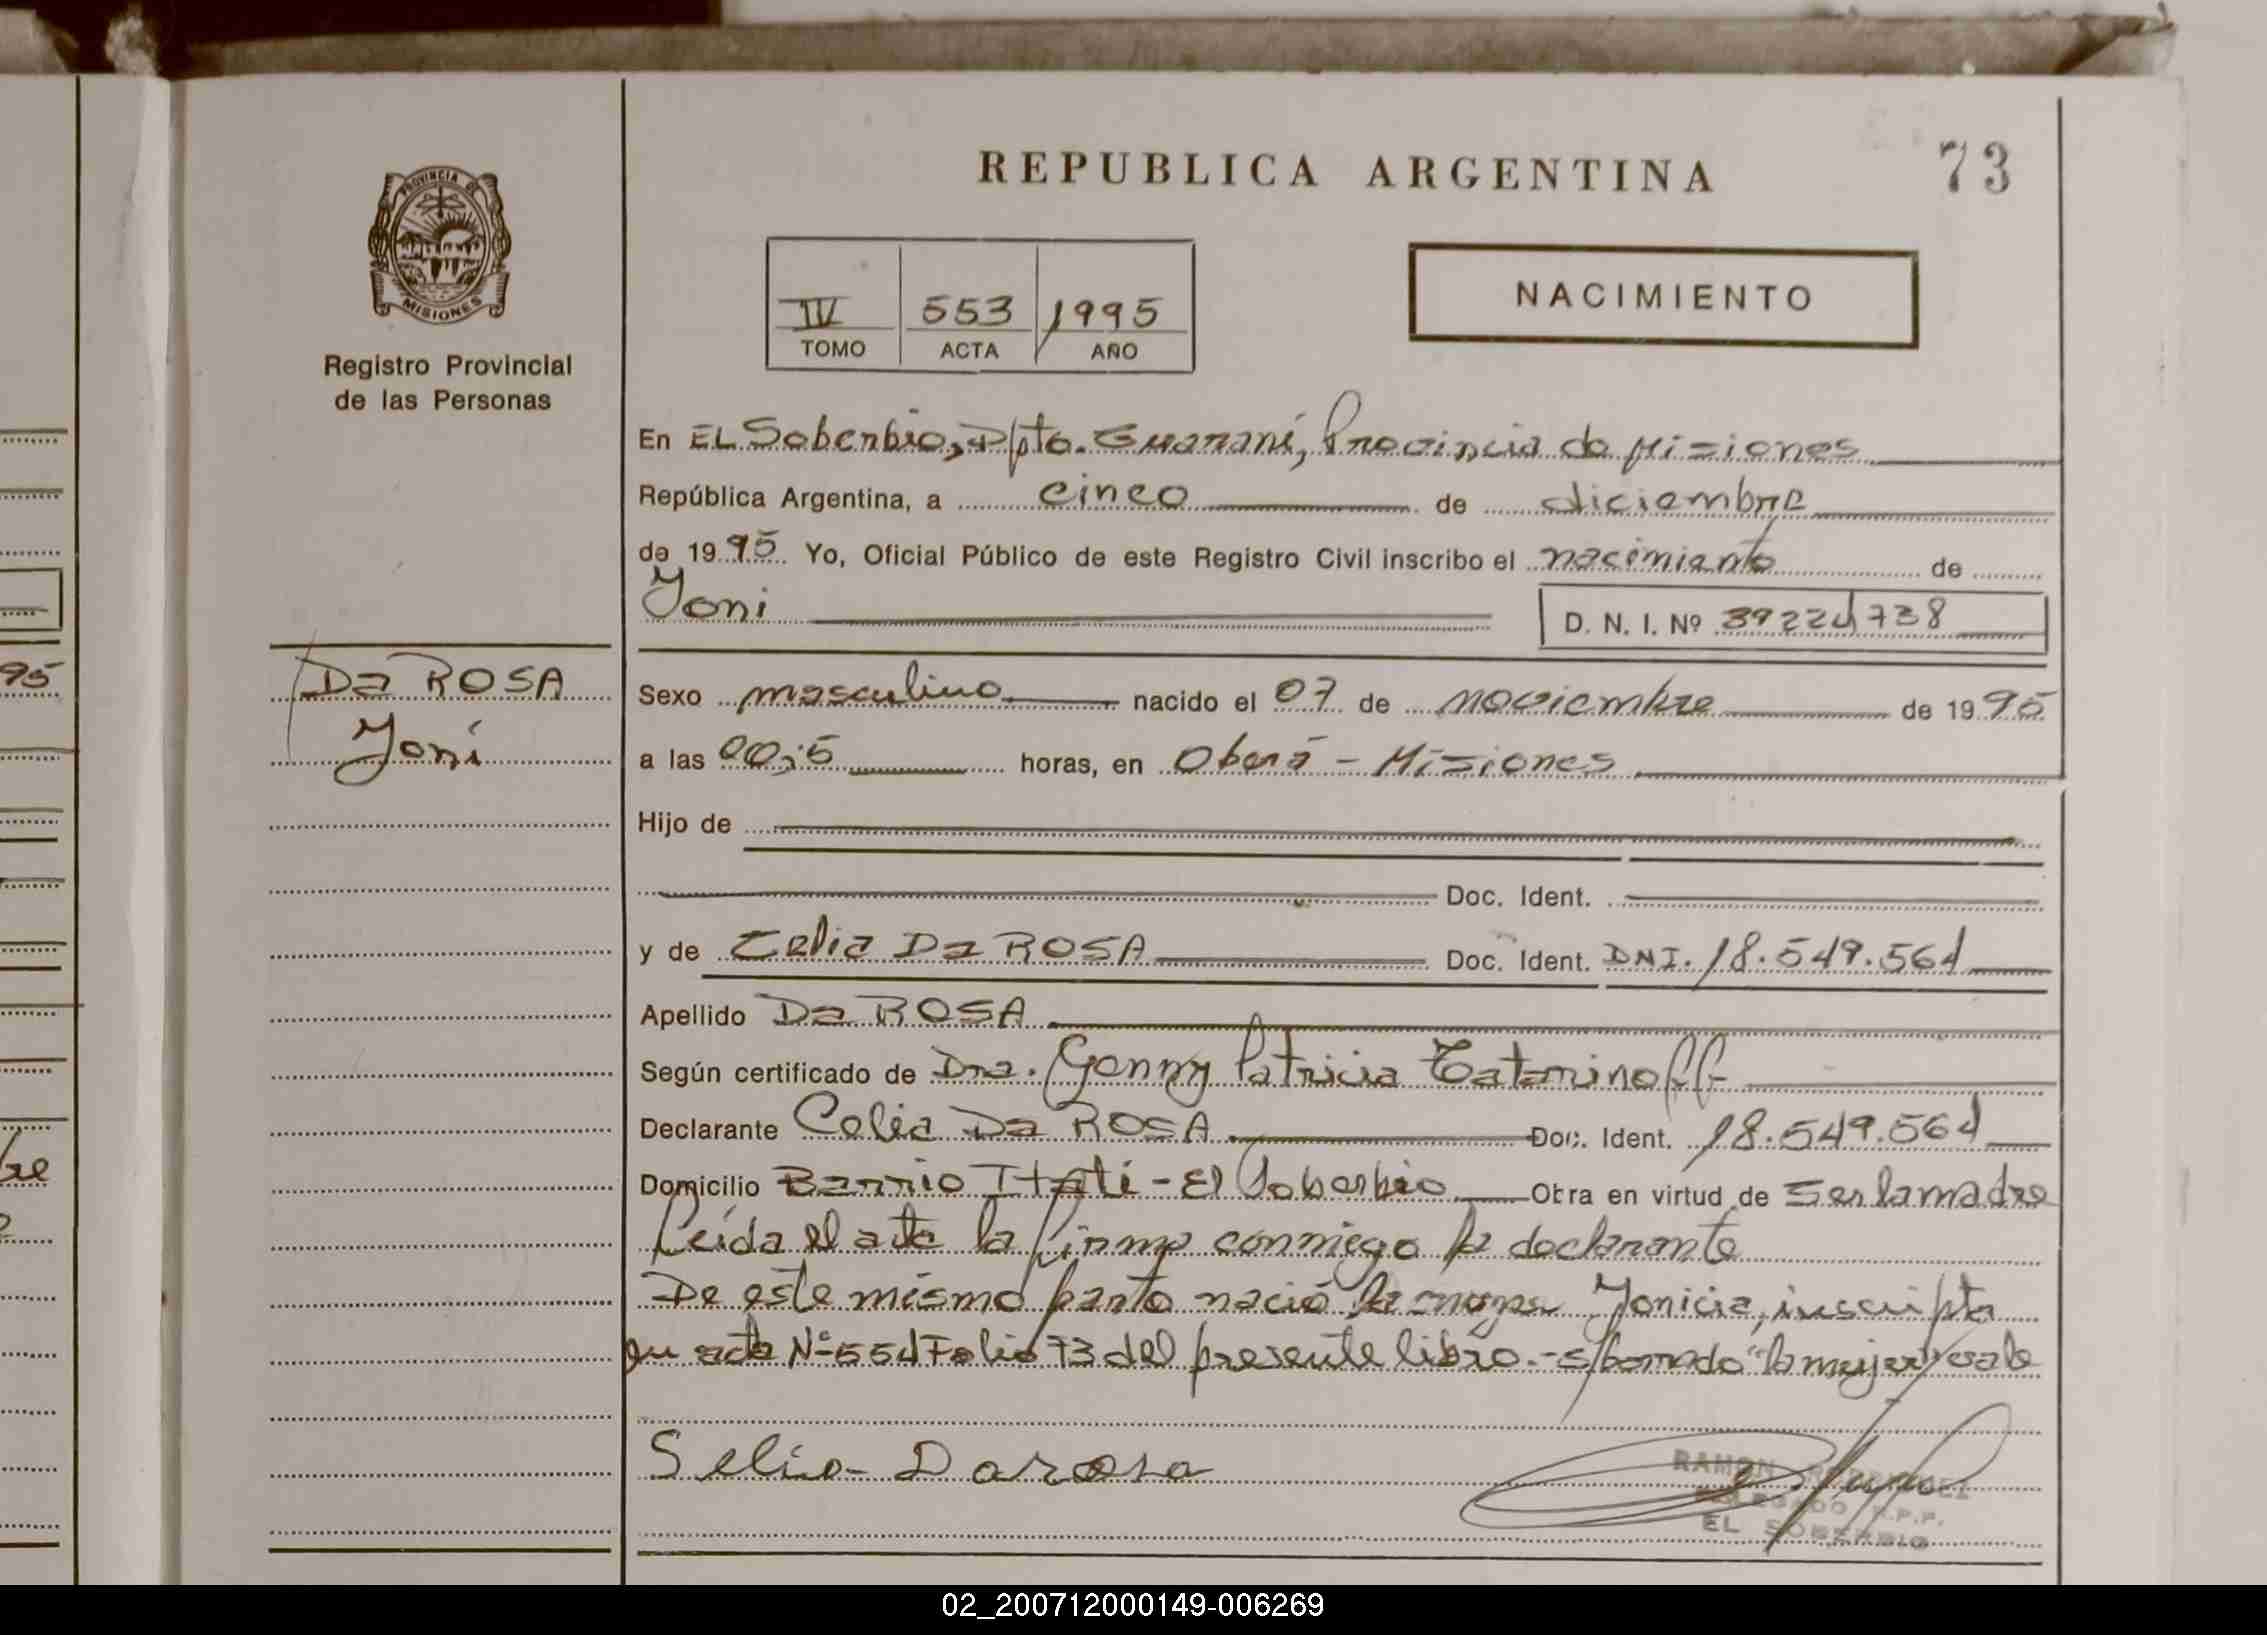 REPUBLICA ARGENTINA
73
PROVINCIA DE
MISIONES
Registro Provincial
de las Personas
IV 553 1995
TOMO ACTA AÑO
NACIMIENTO
En EL Soberbio, Dpto. Guaraní, Provincia de Misiones
República Argentina, a cinco de diciembre
de 1995 Yo, Oficial Público de este Registro Civil inscribo el nacimiento de
Yoni
D. N. I. Nº 39224738
Da ROSA
Yoni
Sexo masculino nacido el 07 de noviembre de 1995
a las 00,5 horas, en Oberá - Misiones
Hijo de
Doc. Ident.
y de Celia Da ROSA Doc. Ident. DNI. 18.549.564
Apellido Da ROSA
Según certificado de Dra. Genny Patricia
Declarante Celia Da ROSA Doc. Ident. 18.549.564
Domicilio Barrio Itatí - El Soberbio Obra en virtud de Ser la madre
Leída el acta la firma conmigo la declarante
De este mismo parto nació la mujer Yonicia, inscripta
en acta Nº 554 Folio 73 del presente libro.- S/borrado "la mujer" vale
Selia Darosa
RAMON RODRIGUEZ
DELEGADO R.P.P.
EL SOBERBIO
95
02_200712000149-006269